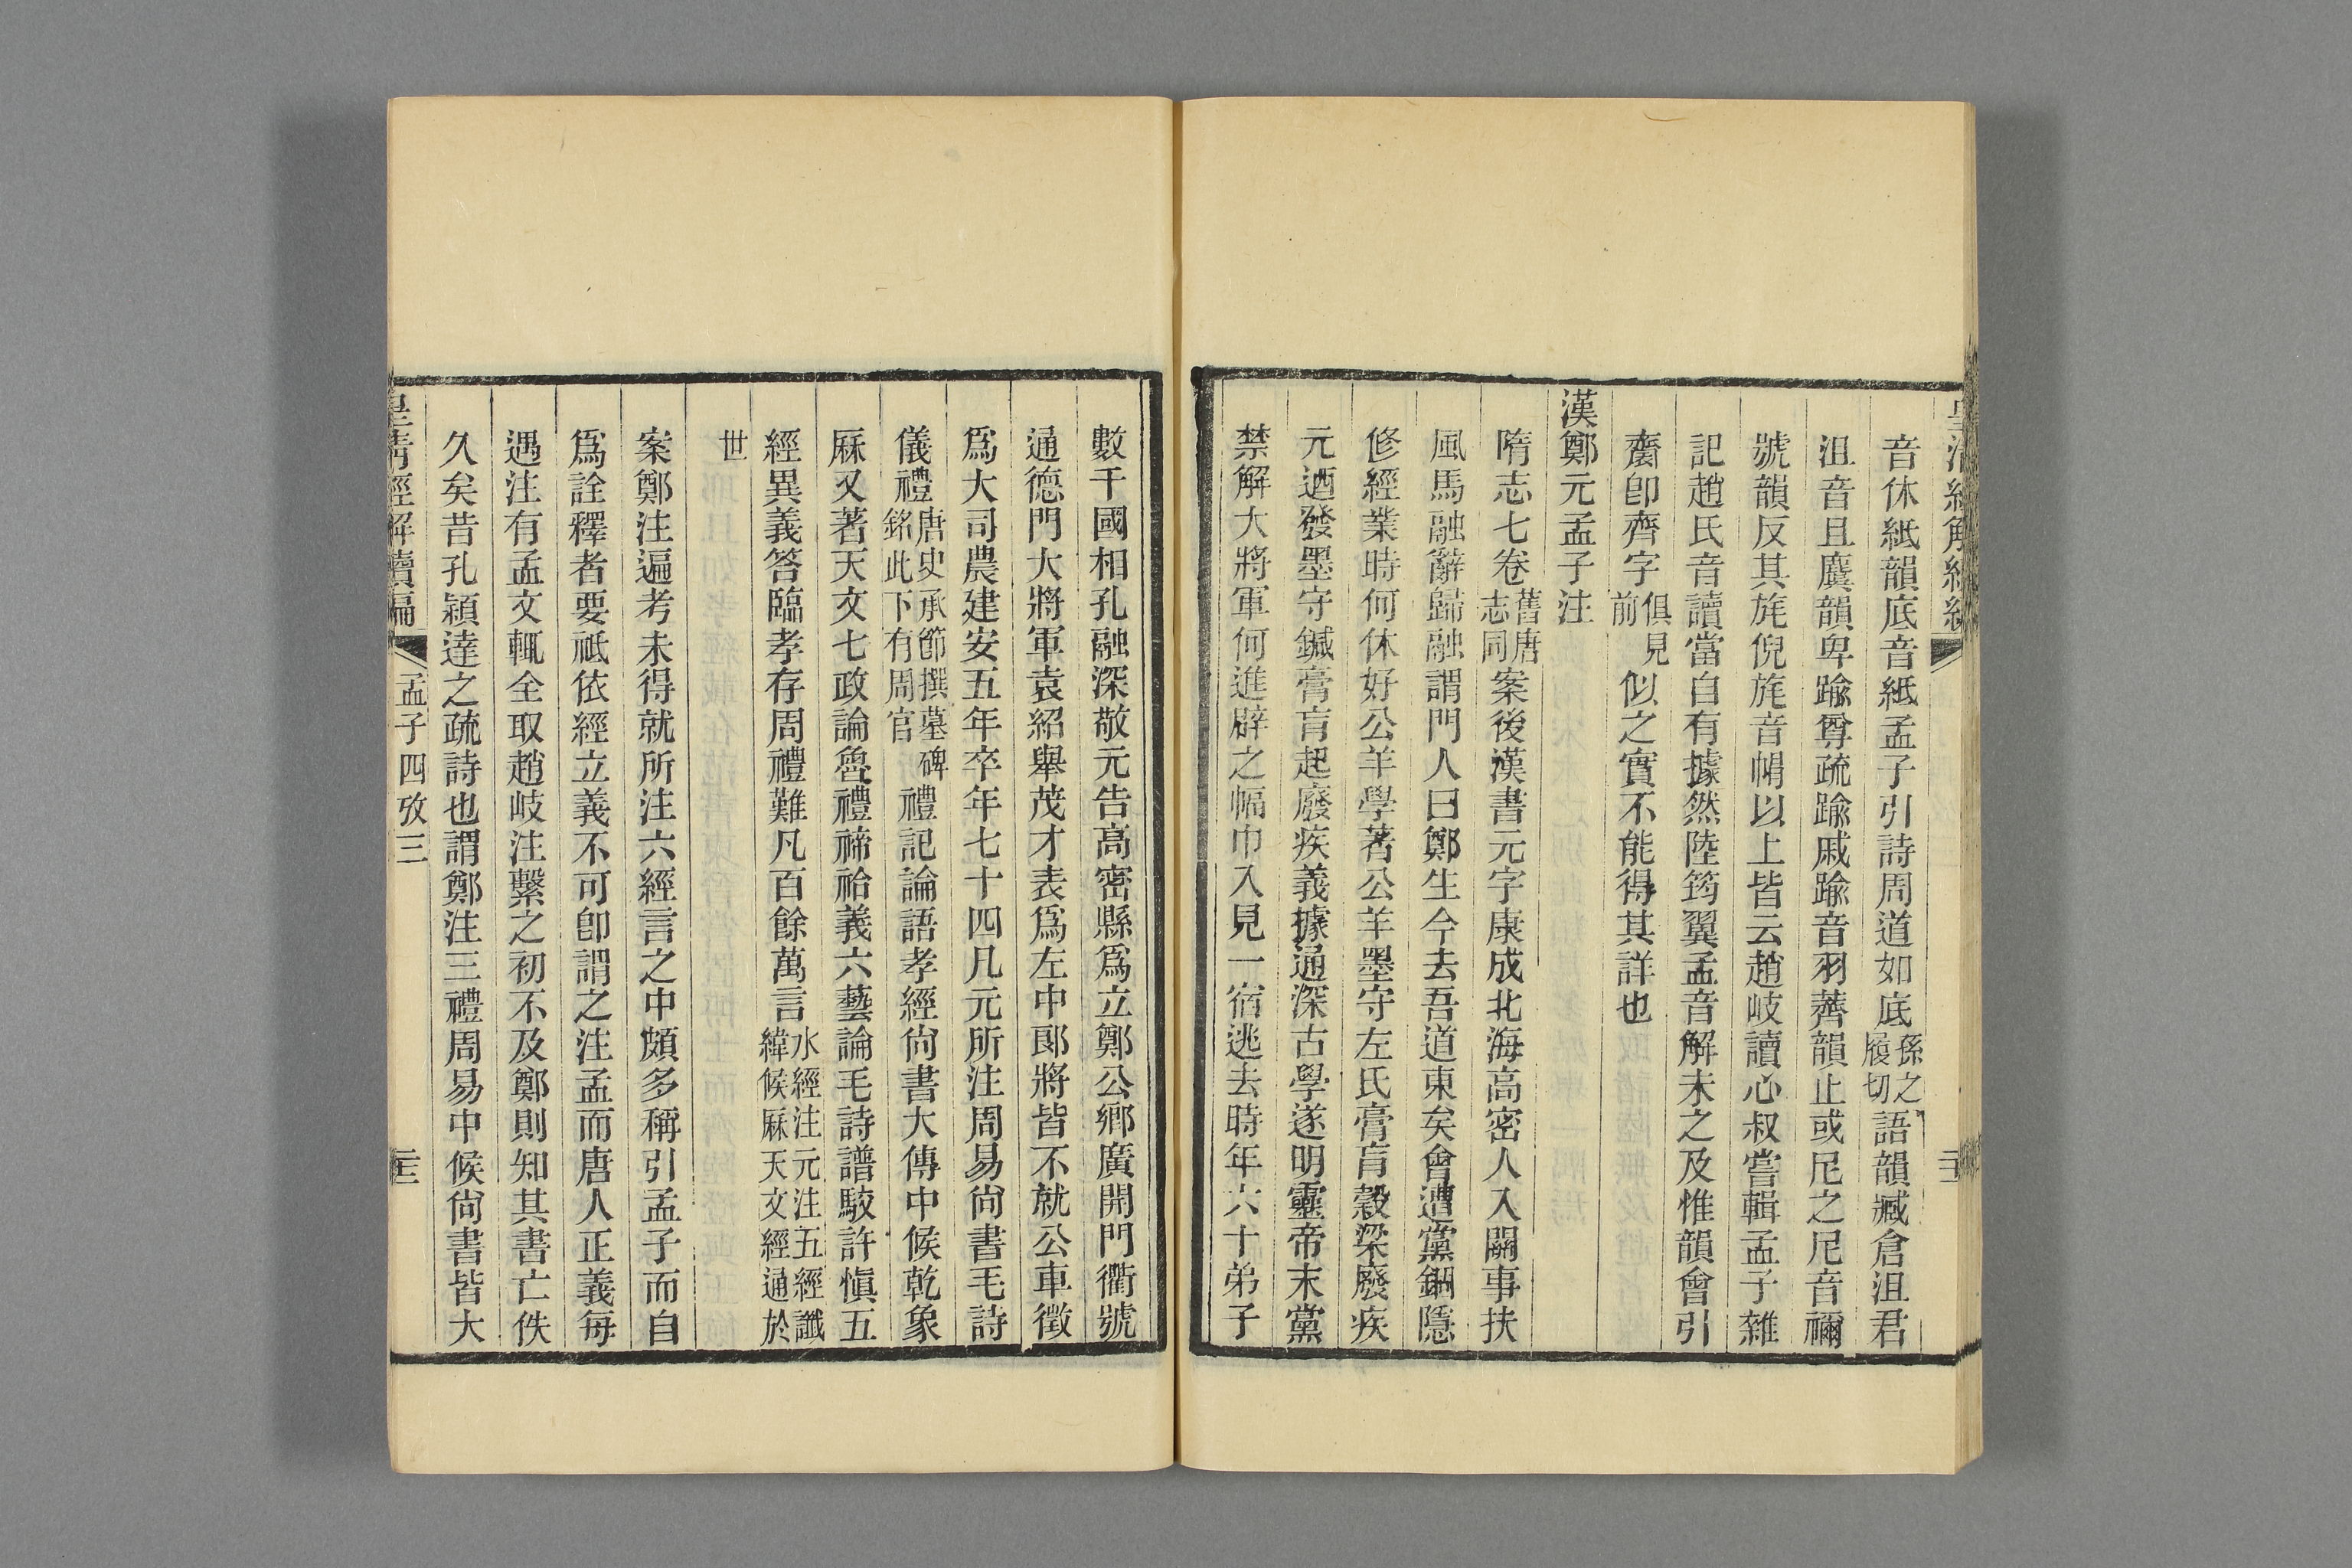 音休紙韻底音紙孟子引詩周道如底孫之履切語韻臧倉沮君
沮音且麌韻卑踰尊疏踰戚踰音羽薺韻止或尼之尼音禰
號韻反其旄倪旄音帽以上皆云趙岐讀心叔嘗輯孟子雜
記趙氏音讀當自有據然陸筠翼孟音解未之及惟韻會引
齌卽齊字俱見前似之實不能得其詳也
漢鄭元孟子注
隋志七卷舊唐志同案後漢書元字康成北海高密人入關事扶
風馬融辭歸融謂門人曰鄭生今去吾道東矣會遭黨錮隱
修經業時何休好公羊學著公羊墨守左氏膏肓穀梁廢疾
元迺發墨守鍼膏肓起廢疾義據通深古學遂明靈帝末黨
禁解大將軍何進辟之幅巾入見一宿逃去時年六十弟子
數千國相孔融深敬元告高密縣爲立鄭公鄉廣開門衢號
通德門大將軍袁紹舉茂才表爲左中郎將皆不就公車徵
爲大司農建安五年卒年七十四凡元所注周易尙書毛詩
儀禮唐史承節撰墓碑銘此下有周官禮記論語孝經尙書大傳中候乾象
厤又著天文七政論魯禮禘祫義六藝論毛詩譜駁許愼五
經異義答臨孝存周禮難凡百餘萬言水經注元注五經讖緯候厤天文經通於
世
案鄭注遍考未得就所注六經言之中頗多稱引孟子而自
爲詮釋者要祗依經立義不可卽謂之注孟而唐人正義每
遇注有孟文輒全取趙岐注繫之初不及鄭則知其書亡佚
久矣昔孔穎達之疏詩也謂鄭注三禮周易中候尙書皆大
皇淸經解續編 孟子四攷三